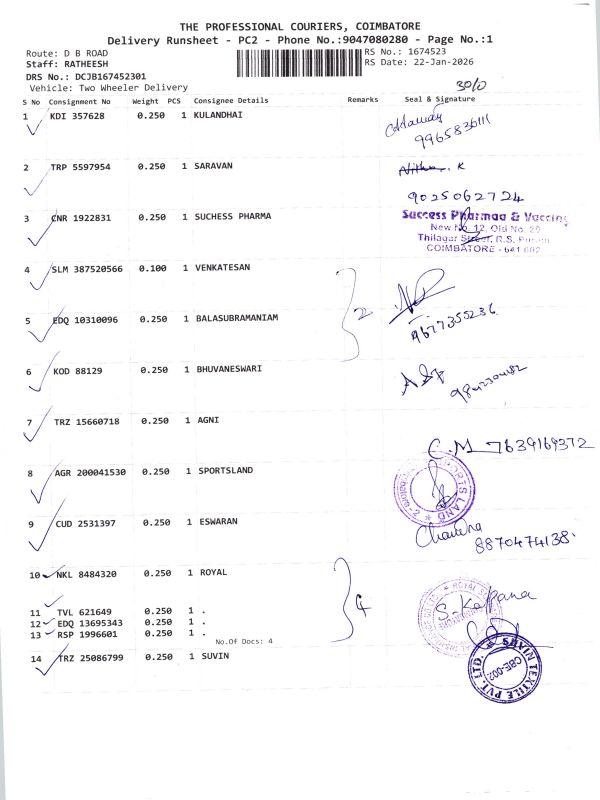 THE PROFESSIONAL COURIERS, COIMBATORE
Delivery Runsheet - PC2 - Phone No.:9047080280 - Page No.:1
Route: D B ROAD
RS No.: 1674523
Staff: RATHEESH
RS Date: 22-Jan-2026
DRS No.: DCJB167452301
Vehicle: Two Wheeler Delivery
S No Consignment No Weight PCS Consignee Details Remarks Seal & Signature
1 KDI 357628 0.250 1 KULANDHAI
2 TRP 5597954 0.250 1 SARAVAN
K
9025062724
3 CNR 1922831 0.250 1 SUCHESS PHARMA
Success Pharmaa & Vaccine
New No. 12, Old No. 20
Thilagar Street, R.S. Puram
COIMBATORE - 641 002
4 SLM 387520566 0.100 1 VENKATESAN
2
5 EDQ 10310096 0.250 1 BALASUBRAMANIAM
9677355236
6 KOD 88129 0.250 1 BHUVANESWARI
7 TRZ 15660718 0.250 1 AGNI
C.M 7639169372
8 AGR 200041530 0.250 1 SPORTSLAND
9 CUD 2531397 0.250 1 ESWARAN
Chandha
8870474138
10 NKL 8484320 0.250 1 ROYAL
4
S. Kalpana
11 TVL 621649 0.250 1 .
12 EDQ 13695343 0.250 1 .
13 RSP 1996601 0.250 1 .
No.Of Docs: 4
14 TRZ 25086799 0.250 1 SUVIN
SUVIN TEXTILE PVT. LTD.
CBE-002